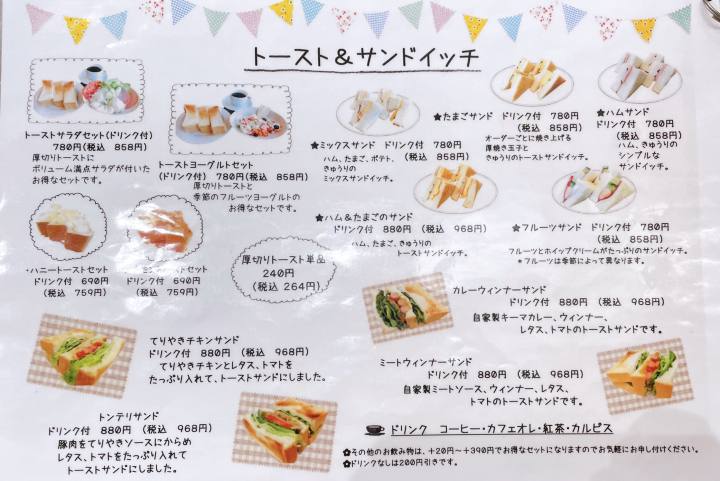 トースト＆サンドイッチ
トーストサラダセット(ドリンク付)
780円(税込 858円)
厚切りトーストに
ボリューム満点サラダが付いた
お得なセットです。
トーストヨーグルトセット
(ドリンク付) 780円(税込 858円)
厚切りトーストと
季節のフルーツヨーグルトの
お得なセットです。
★ミックスサンド ドリンク付 780円
(税込 858円)
ハム、たまご、ポテト、
きゅうりの
ミックスサンドイッチ。
★たまごサンド ドリンク付 780円
(税込 858円)
オーダーごとに焼き上げる
厚焼き玉子と
きゅうりのトーストサンドイッチ。
★ハムサンド
ドリンク付 780円
(税込 858円)
ハム、きゅうりの
シンプルな
サンドイッチ。
★ハム＆たまごのサンド
ドリンク付 880円 (税込 968円)
ハム、たまご、きゅうりの
トーストサンドイッチ。
★フルーツサンド ドリンク付 780円
(税込 858円)
フルーツとホイップクリームがたっぷりのサンドイッチ。
＊フルーツは季節によって異なります。
・ハニートーストセット
ドリンク付 690円
(税込 759円)
トーストセット
ドリンク付 690円
(税込 759円)
厚切りトースト単品
240円
(税込 264円)
カレーウィンナーサンド
ドリンク付 880円 (税込 968円)
自家製キーマカレー、ウィンナー、
レタス、トマトのトーストサンドです。
てりやきチキンサンド
ドリンク付 880円 (税込 968円)
てりやきチキンとレタス、トマトを
たっぷり入れて、トーストサンドにしました。
ミートウィンナーサンド
ドリンク付 880円 (税込 968円)
自家製ミートソース、ウィンナー、レタス、
トマトのトーストサンドです。
トンテリサンド
ドリンク付 880円 (税込 968円)
豚肉をてりやきソースにからめ
レタス、トマトをたっぷり入れて
トーストサンドにしました。
ドリンク コーヒー・カフェオレ・紅茶・カルピス
✿その他のお飲み物は、+20円〜+390円でお得なセットになりますのでお気軽にお申し付けください。
✿ドリンクなしは200円引きです。